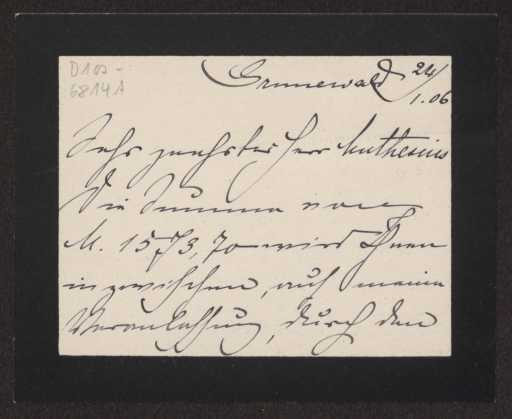 D102-
6814A
Grunewald 24/1.06
Sehr geehrter Herr Muthesius
Die Summe von
M. 1573,70 wird Ihnen
inzwischen, auf meine
Veranlassung, durch den